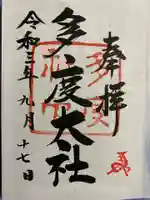 奉拝
多度大社
令和三年九月十七日